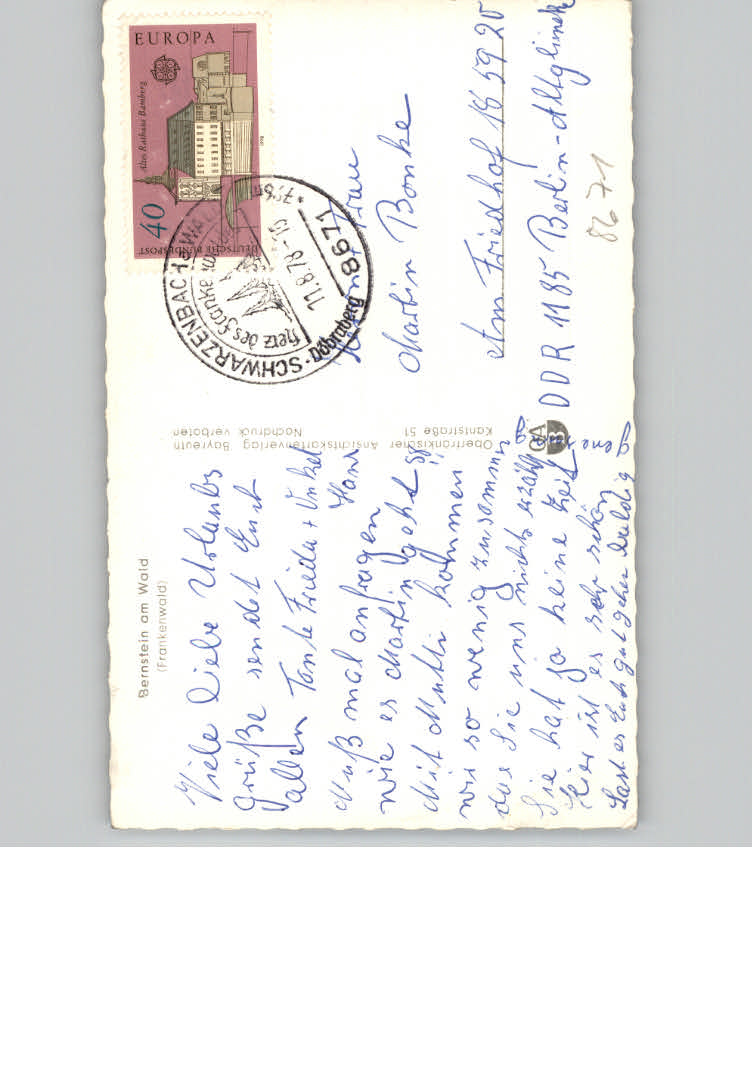 Bernstein am Wald
(Frankenwald)
Viele liebe Urlaubs
grüße sendet Euch
allen Tante Frieda + Onkel
Hans
Muß mal anfragen
wie es Martin geht
Mit Mutti kommen
wir so wenig zusammen
das Sie uns nichts erzählt
Sie hat ja keine Zeit
Hier ist es sehr schön
Last es Euch gut gehen
Oberfränkischer Ansichtskartenverlag Bayreuth
Kantstraße 51 Nachdruck verboten
EUROPA
Altes Rathaus Bamberg
40
DEUTSCHE BUNDESPOST
1978
SCHWARZENBACH a. WALD
Döbraberg
Herz des Frankenwaldes
11.8.78-15
8671
Frau
Martin Bonke
Am Friedhof 18 59 20
DDR 1185 Berlin-Altglienicke
8671